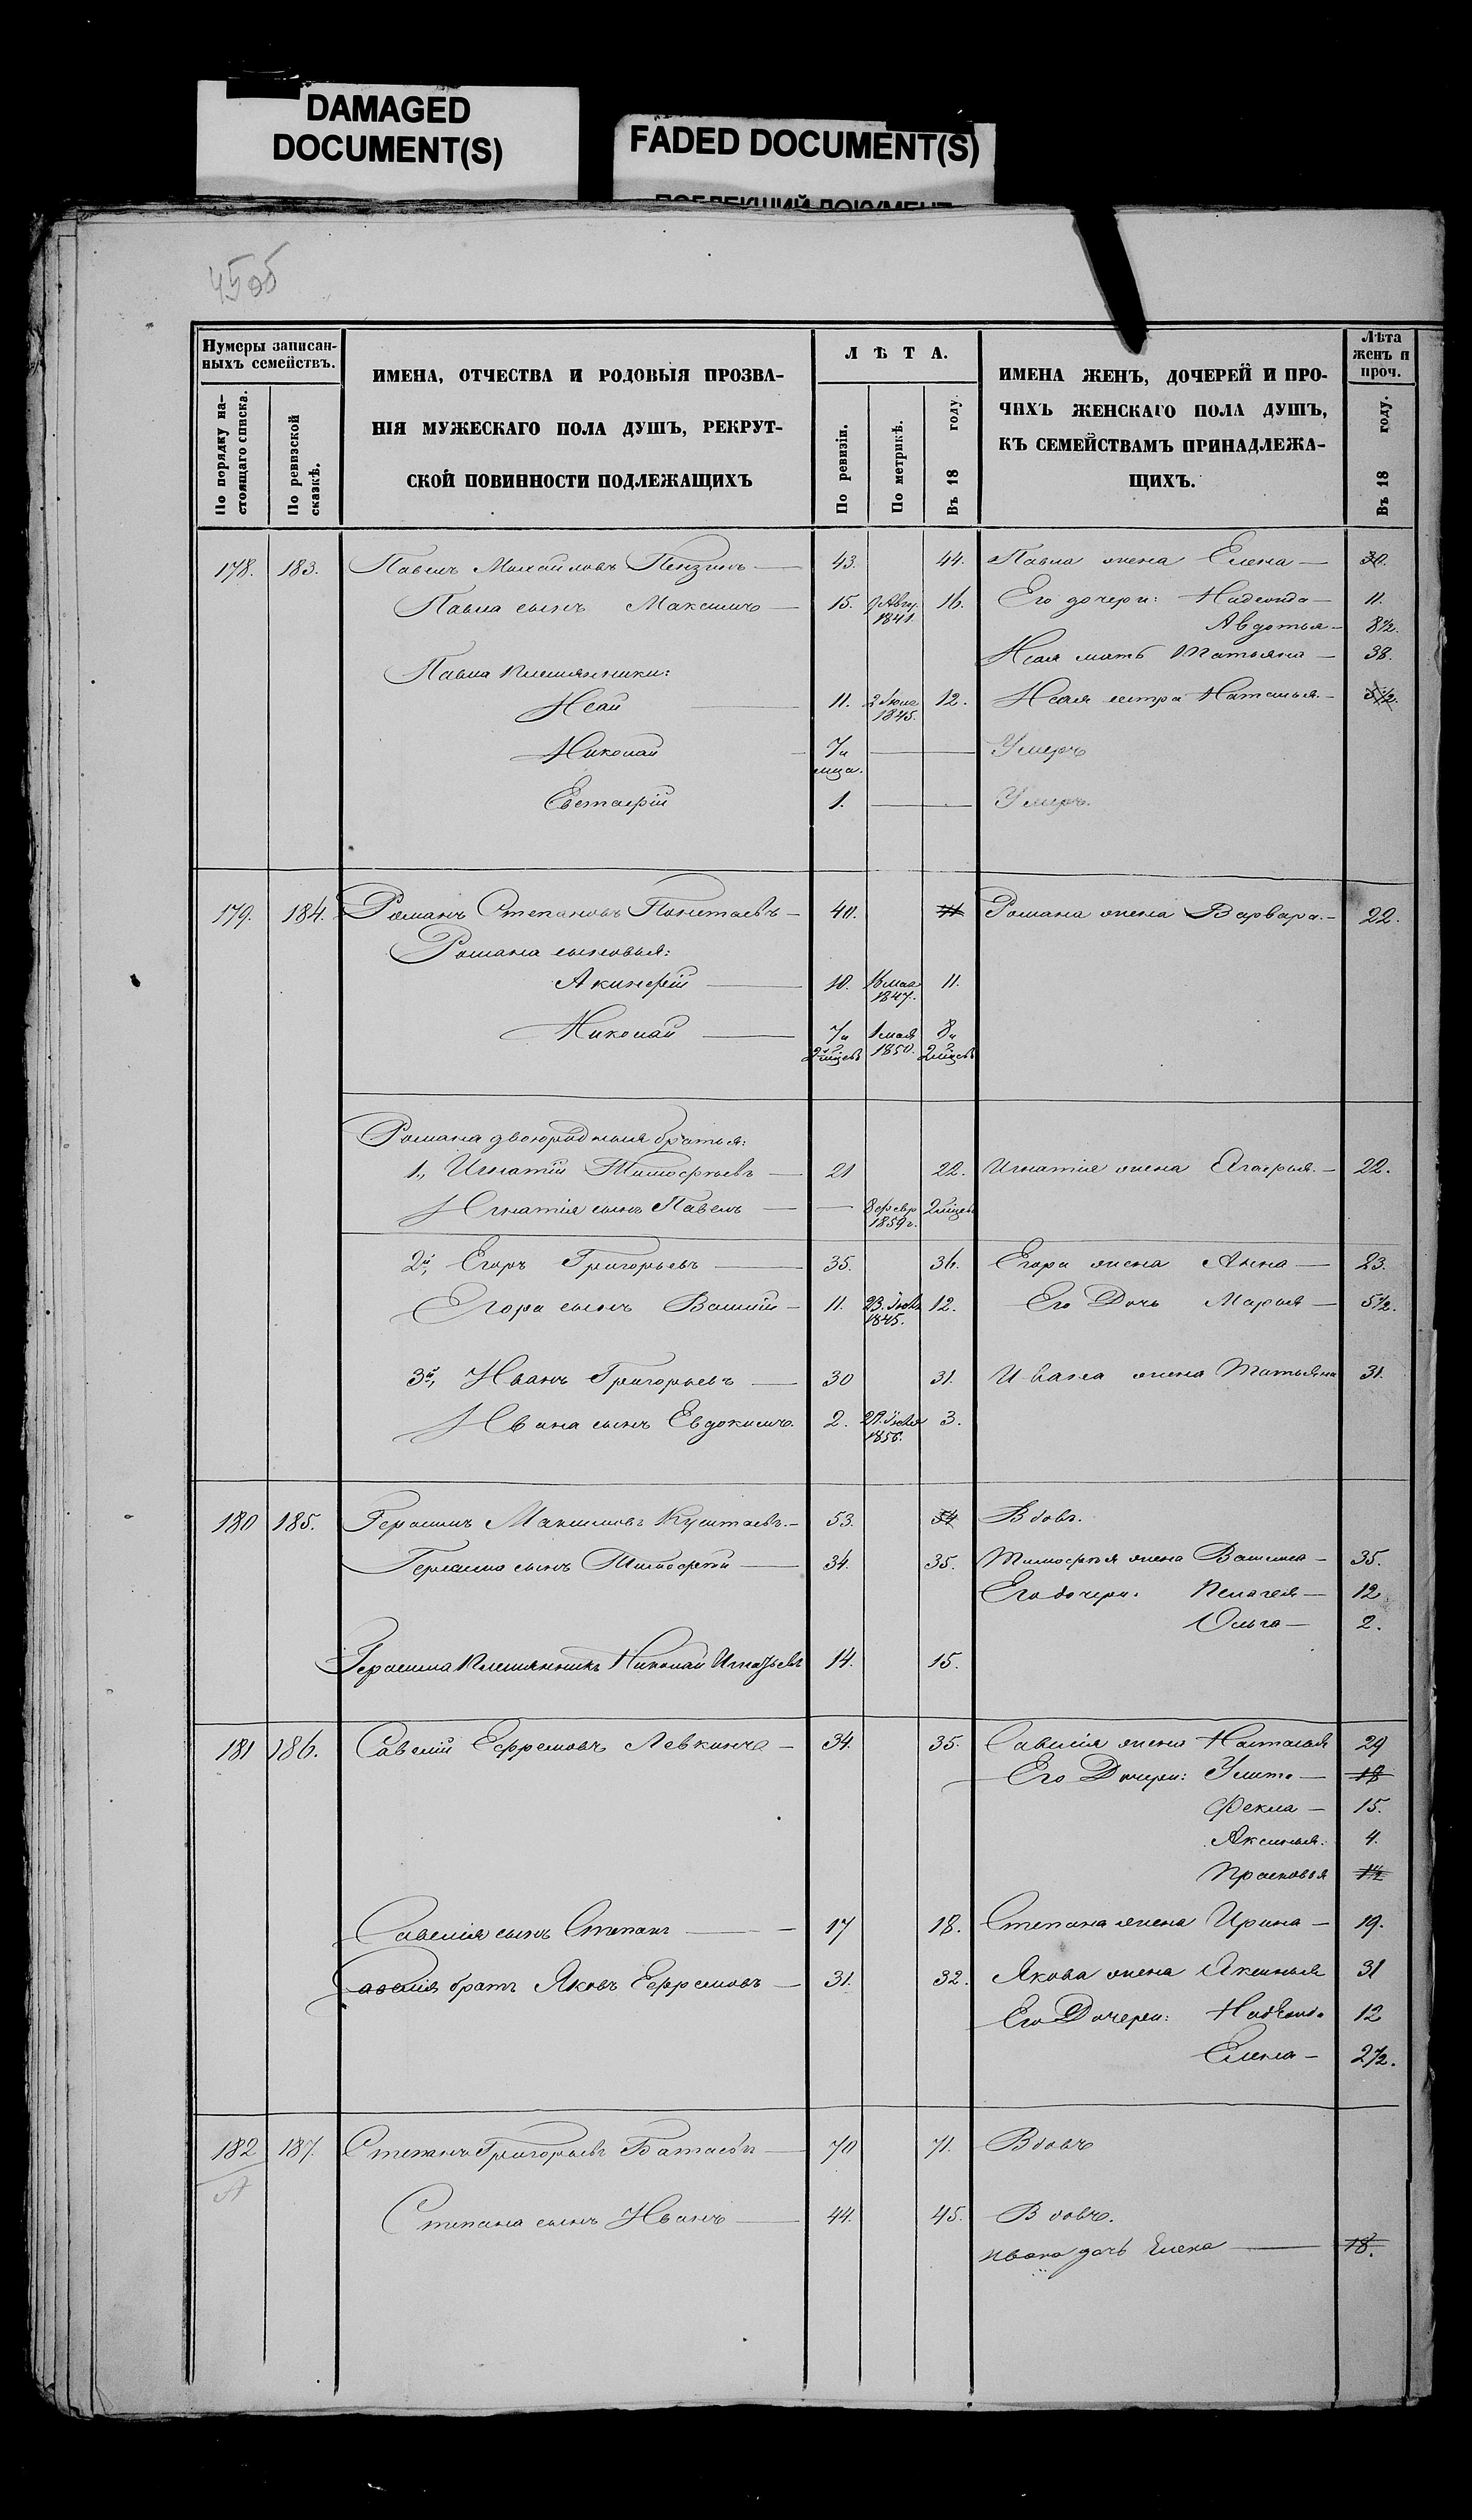 DAMAGED
DOCUMENT(S)
FADED DOCUMENT(S)
45об
Нумеры записан-
ныхъ семействъ.
По порядку на-
стоящаго списка.
По ревизской
сказкѣ.
ИМЕНА, ОТЧЕСТВА И РОДОВЫЯ ПРОЗВА-
НІЯ МУЖЕСКАГО ПОЛА ДУШЪ, РЕКРУТ-
СКОЙ ПОВИННОСТИ ПОДЛЕЖАЩИХЪ
ЛѢТА.
По ревизіи.
По метрикѣ.
Въ 18 году.
ИМЕНА ЖЕНЪ, ДОЧЕРЕЙ И ПРО-
ЧИХЪ ЖЕНСКАГО ПОЛА ДУШЪ,
КЪ СЕМЕЙСТВАМЪ ПРИНАДЛЕЖА-
ЩИХЪ.
Лѣта
женъ и
проч.
Въ 18 году.
178. 183. Павелъ Михайловъ Пензинъ — 43. 44. Павла жена Елена — 30.
Павла сынъ Максимъ — 15. 9 Авгу. 1841. 16. Его дочери: Надежда — 11.
Авдотья — 8½.
Исая мать Татьяна — 38.
Павла племянники:
Исай 11. 2 Іюля 1845. 12. Исая сестра Наталья — 5½.
Николай 7 и мца. Умеръ
Евстафій 1. Умеръ.
179. 184. Романъ Степановъ — 40. 41 Романа жена Варвара. — 22.
Романа сыновья:
Акинфій — 10. 16 мая 1847. 11.
Николай — 7 и 2 мцевъ 1 мая 1850. 8 и 2 мцевъ
Романа двоюродныя братья:
1., Игнатій Тимофѣевъ — 21 22. Игнатія жена Агафья. — 22.
Игнатія сынъ Павелъ — — 8 февр 1859 г. 2 мцев
2й, Егоръ Григорьевъ — 35. 36. Егора жена Анна — 23.
Егора сынъ Василій — 11. 23. 1845. 12. Его Дочь Марья — 5½.
3й, Иванъ Григорьевъ — 30 31. Ивана жена Татьяна 31.
Ивана сынъ Евдокимъ. 2. 29. 1856. 3.
180 185. Герасимъ Максимовъ — 53. 54 Вдовъ.
Герасима сынъ Тимофей — 34. 35. Тимофѣя жена Василиса — 35.
Его дочери: Пелагея — 12
Ольга — 2.
Герасима племянникъ Николай Игнатьевъ 14. 15.
181 186. Савелій Ефремовъ Левкинъ — 34. 35. Савелія жена Наталья 29
Его Дочери: Улита — 18
Фекла — 15.
Аксинья. 4.
Прасковья 1½
Савелія сынъ Степанъ — 17 18. Степана жена Ирина — 19.
Савелія братъ Яковъ Ефремовъ — 31. 32. Якова жена Аксинья 31
Его Дочери: Надежда 12
Елена — 2½.
182 187. Степанъ Григорьевъ Батаевъ — 70 71. Вдовъ
А
Степана сынъ Иванъ — 44. 45. Вдовъ.
Ивана дочь Елена — 18.